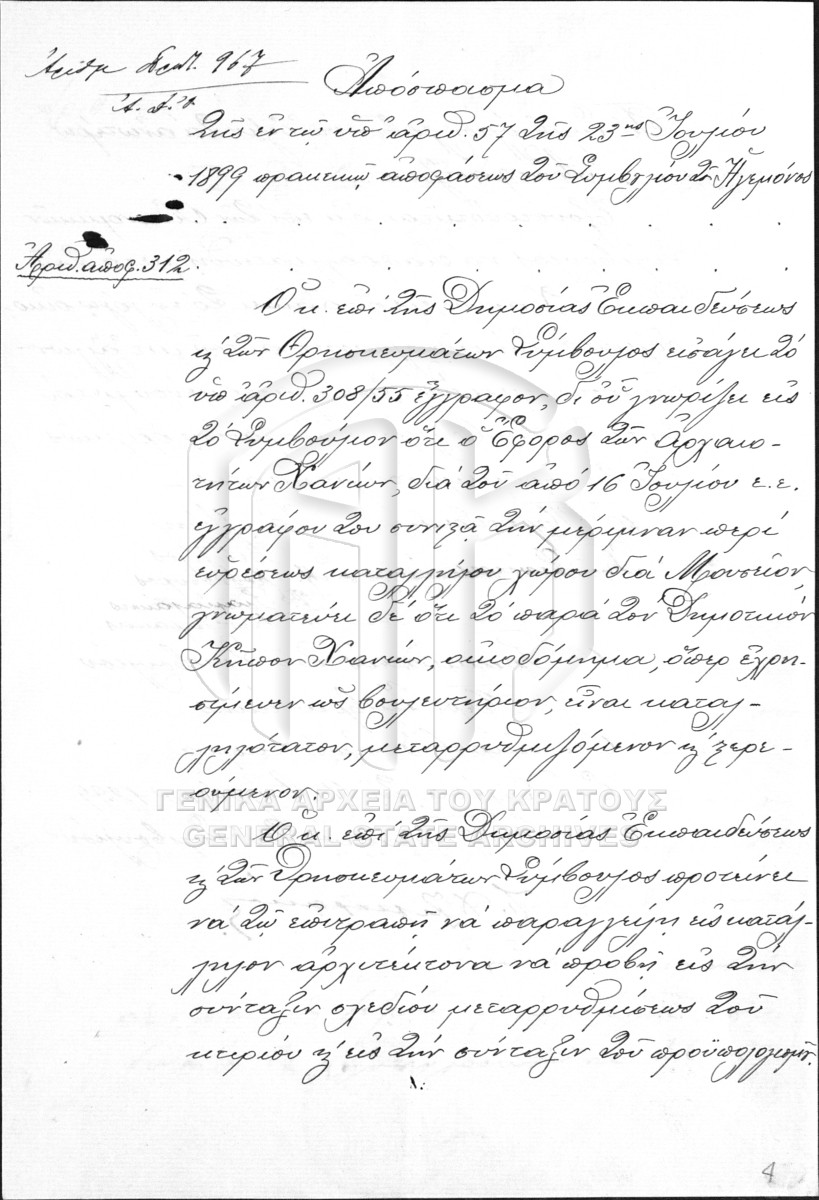 Ἀριθμ. Πρωτ. 967
Ἀπόσπασμα
τῆς ἐν τῷ ὑπ' ἀριθ. 57 τῆς 23ης Ἰουλίου
1899 πρακτικῷ ἀποφάσεως τοῦ Συμβουλίου τοῦ Ἡγεμόνος
Ἀριθ. ἀποφ. 312.
Ὁ κ. ἐπὶ τῆς Δημοσίας Ἐκπαιδεύσεως
κ' τῶν Θρησκευμάτων Σύμβουλος εἰσάγει τὸ
ὑπ' ἀριθ. 308/55 ἔγγραφον, δι' οὗ γνωρίζει εἰς
τὸ Συμβούλιον ὅτι ὁ Ἔφορος τῶν Ἀρχαιο-
τήτων Χανίων, διὰ τοῦ ἀπὸ 16 Ἰουλίου ἐ. ἔ.
ἐγγράφου του συνιστᾷ τὴν μέριμναν περὶ
εὑρέσεως καταλλήλου χώρου διὰ Μουσεῖον
γνωματεύει δὲ ὅτι τὸ παρὰ τὸν Δημοτικὸν
Κῆπον Χανίων, οἰκοδόμημα, ὅπερ ἐχρη-
σίμευεν ὡς βουλευτήριον, εἶναι καταλ-
ληλότατον, μεταρρυθμιζόμενον κ' στερε-
ούμενον.
Ὁ κ. ἐπὶ τῆς Δημοσίας Ἐκπαιδεύσεως
κ' τῶν Θρησκευμάτων Σύμβουλος προτείνει
νὰ τῷ ἐπιτραπῇ νὰ παραγγείλῃ εἰς κατάλ-
ληλον ἀρχιτέκτονα νὰ προβῇ εἰς τὴν
σύνταξιν σχεδίου μεταρρυθμίσεως τοῦ
κτιρίου κ' εἰς τὴν σύνταξιν τοῦ προϋπολογισμοῦ.
ΓΕΝΙΚΑ ΑΡΧΕΙΑ ΤΟΥ ΚΡΑΤΟΥΣ
GENERAL STATE ARCHIVES
4